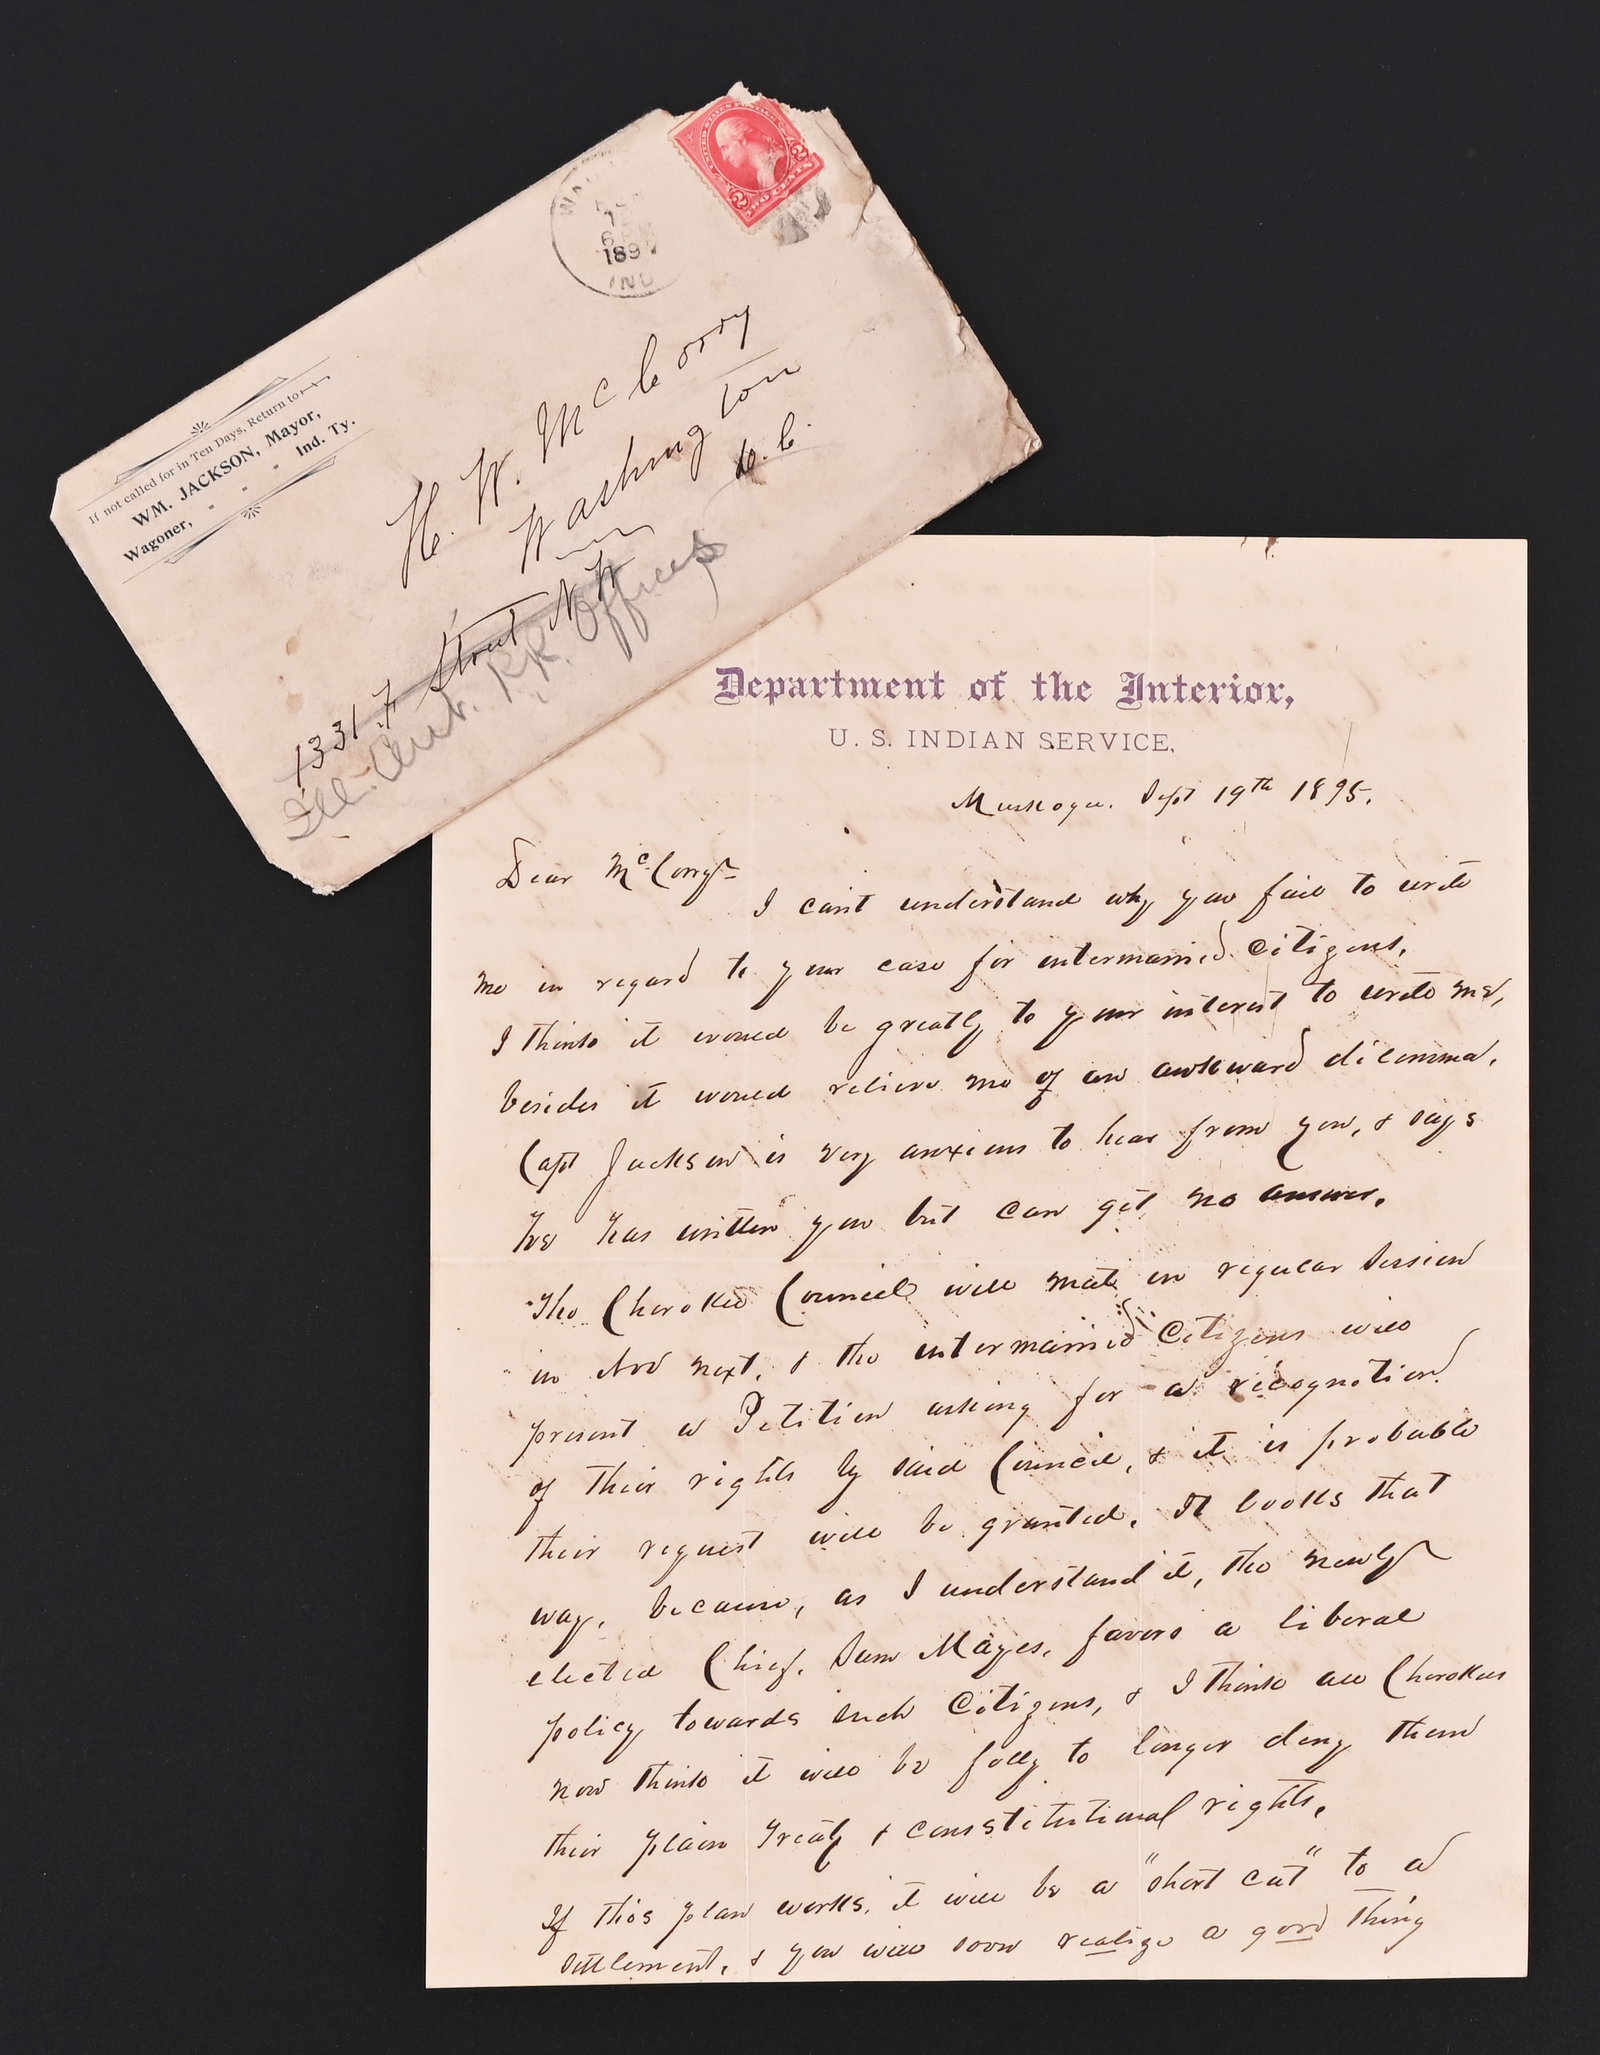 WA
1
6
189
IND
UNITED STATES POSTAGE
2 2
TWO CENTS
If not called for in Ten Days, Return to
WM. JACKSON, Mayor,
Wagoner, - - - Ind. Ty.
H. W. McCorry
Washington
D. C.
1331 F Street N. W.
Ill. Cent. R.R. Office
Department of the Interior,
U. S. INDIAN SERVICE,
Muskogee. Sept 19th 1895.
Dear McCorry-
I can't understand why you fail to write
me in regard to your case for intermarried Citizens.
I think it would be greatly to your interest to write me,
besides it would relieve me of an awkward dilemma.
Capt Jackson is very anxious to hear from you, & says
he has written you but can get no answer.
The Cherokee Council will mete in regular Session
in Nov next, & the intermarried Citizens will
present a Petition asking for a recognition
of their rights by said Council, & it is probable
their request will be granted. It looks that
way, because, as I understand it, the newly
elected Chief, Sam Mayes, favors a liberal
policy towards such Citizens, & I think all Cherokees
now think it will be folly to longer deny them
their plain Treaty & constitutional rights.
If this plan works, it will be a "short cut" to a
settlement, & you will soon realize a good thing